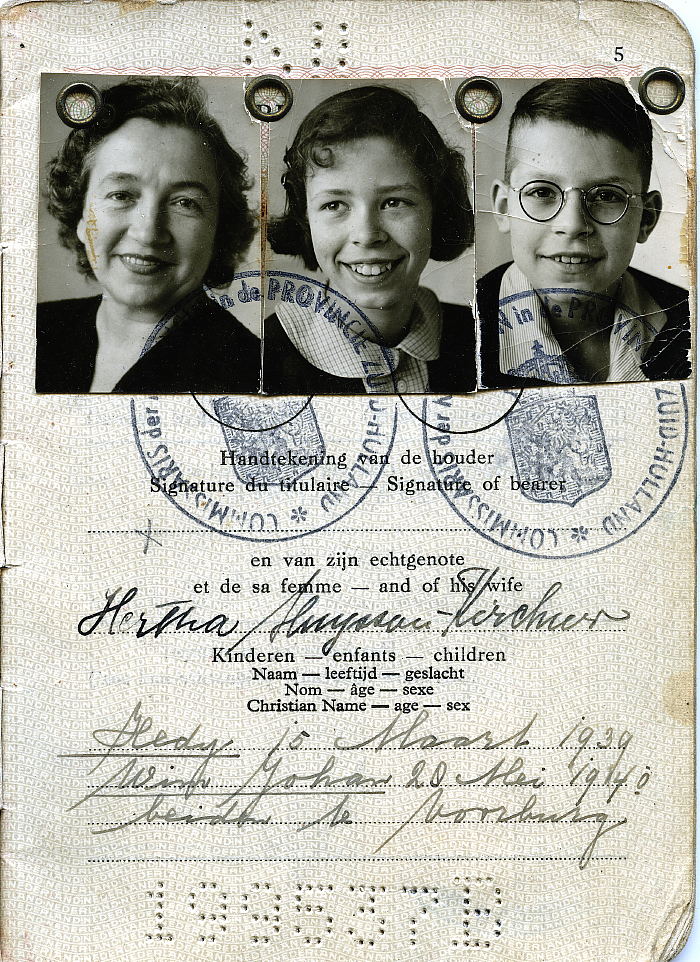 NII
5
COMMISSARIS der in de PROVINCIE ZUID-HOLLAND
COMMISSARIS der V in de PROVIN ZUID-HOLLAND
Handtekening van de houder
Signature du titulaire — Signature of bearer
en van zijn echtgenote
et de sa femme — and of his wife
Hertha -Kirchner
Kinderen — enfants — children
Naam — leeftijd — geslacht
Nom — âge — sexe
Christian Name — age — sex
Hedy Maart 1939
Wim Johan 28 Mei 1940
beiden te Voorburg
199537B